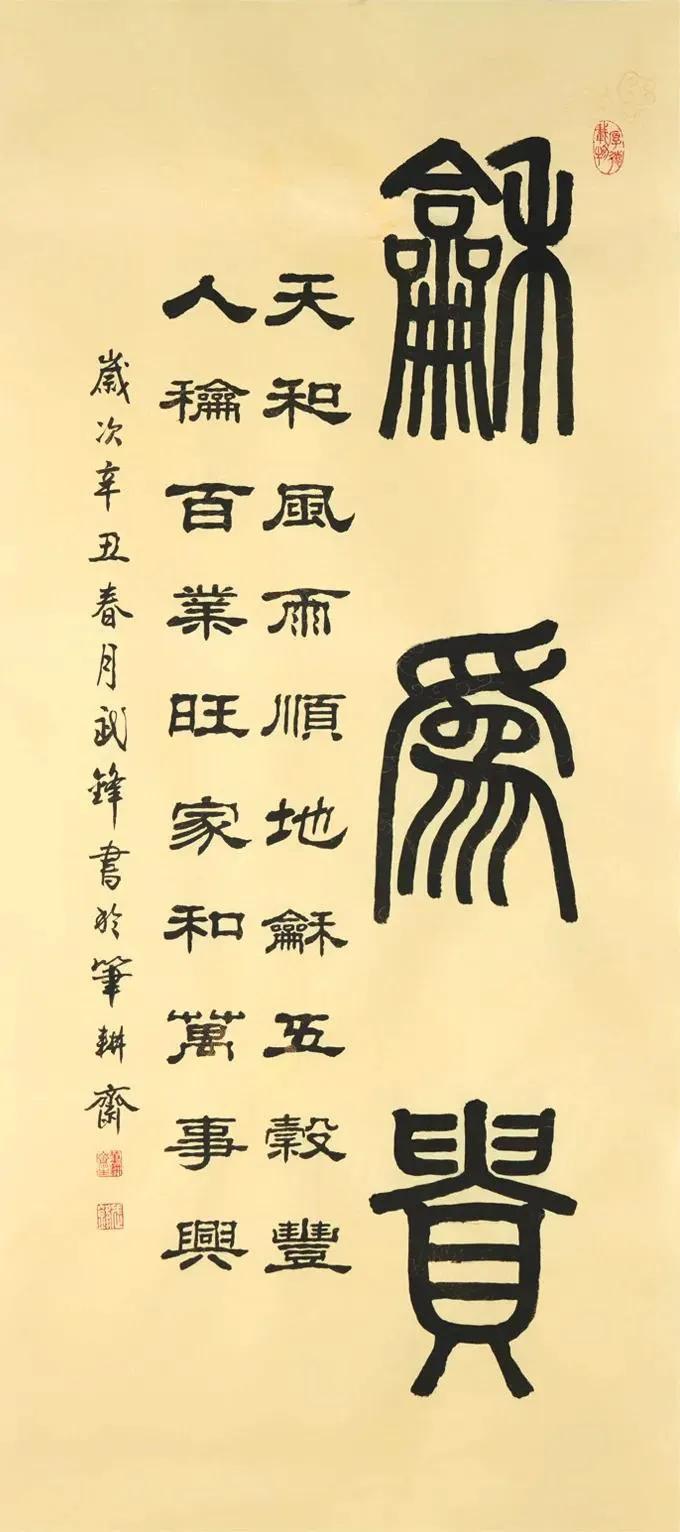 厚德載物
龢爲貴
天和風雨順地龢五穀豐
人龢百業旺家和萬事興
歲次辛丑春月武鋒書於筆耕齋